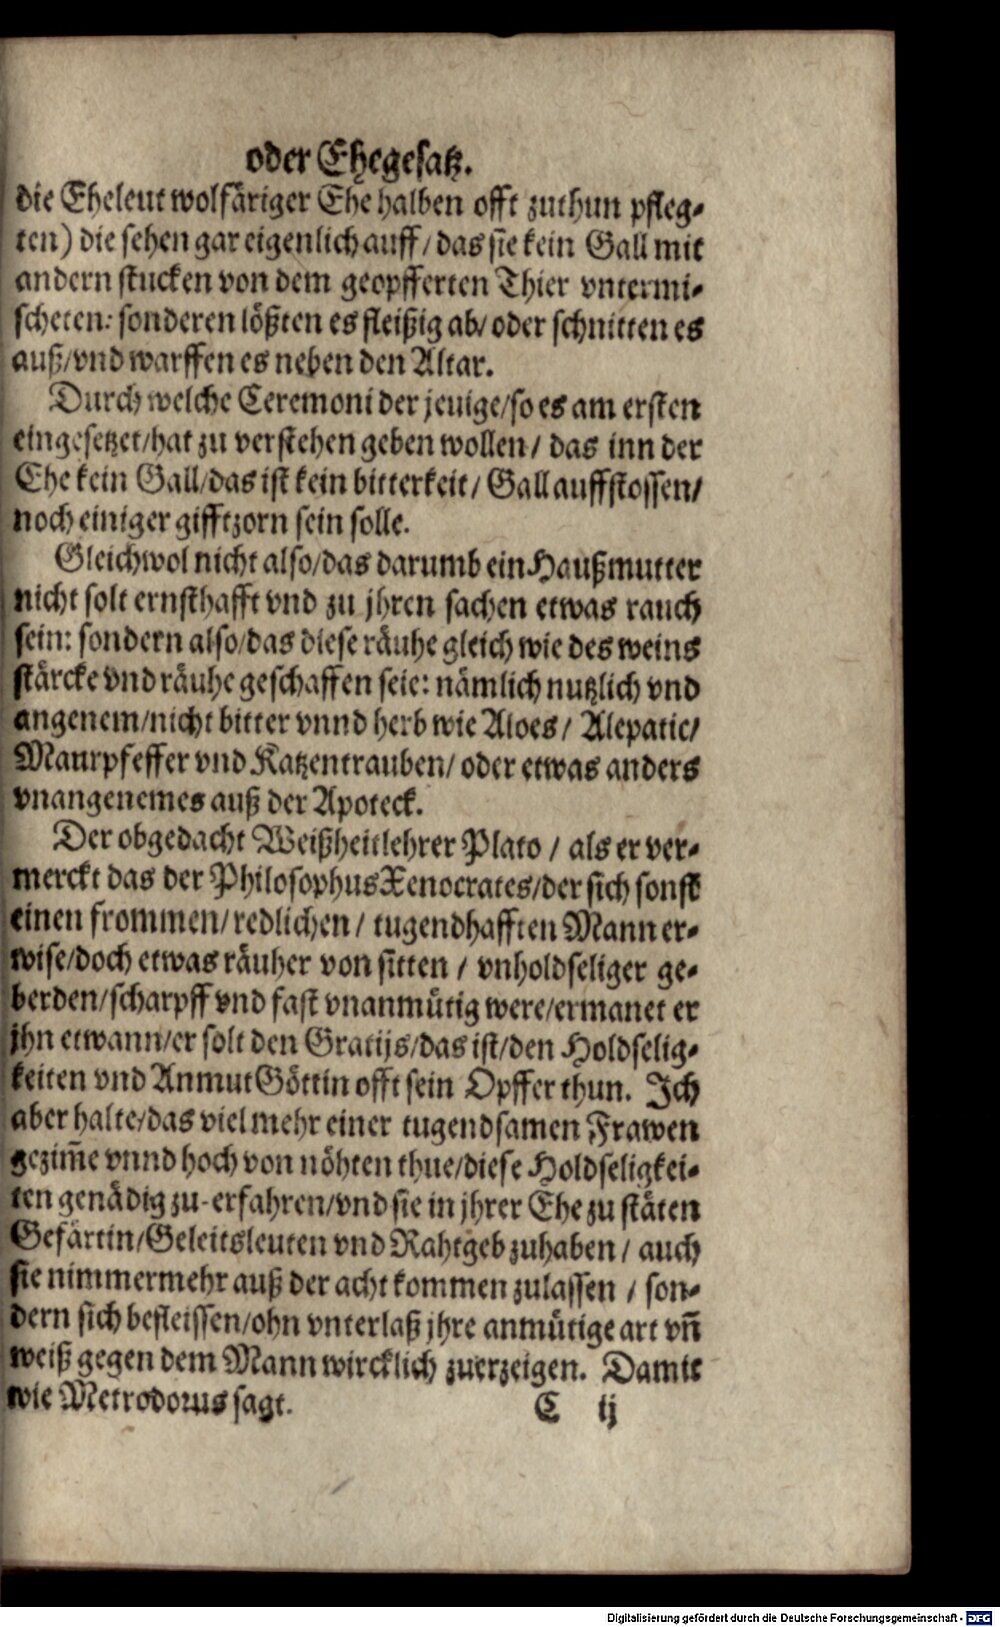 oder Ehegesatz.
die Eheleut wolfäriger Ehe halben offt zuthun pfleg-
ten) die sehen gar eigenlich auff/ das sie kein Gall mit
andern stucken von dem geopfferten Thier vntermi-
scheten: sonderen lößten es fleißig ab/ oder schnitten es
auß/ vnd warffen es neben den Altar.
Durch welche Ceremoni der jenige/ so es am ersten
eingesetzet/ hat zu verstehen geben wollen/ das inn der
Ehe kein Gall/ das ist kein bitterkeit/ Gall auffstossen/
noch einiger gifftzorn sein solle.
Gleichwol nicht also/ das darumb ein Haußmutter
nicht solt ernsthafft vnd zu jhren sachen etwas rauch
sein: sondern also/ das diese räuhe gleich wie des weins
stärcke vnd räuhe geschaffen seie: nämlich nutzlich vnd
angenem/ nicht bitter vnnd herb wie Aloes/ Alepatic/
Maurpfeffer vnd Katzentrauben/ oder etwas anders
vnangenemes auß der Apoteck.
Der obgedacht Weißheitlehrer Plato / als er ver-
merckt das der Philosophus Xenocrates/ der sich sonst
einen frommen/ redlichen / tugendhafften Mann er-
wise/ doch etwas räuher von sitten / vnholdseliger ge-
berden/ scharpff vnd fast vnanmütig were/ ermanet er
jhn etwann/ er solt den Gratijs/ das ist/ den Holdselig-
keiten vnd Anmut Göttin offt sein Opffer thun. Ich
aber halte/ das viel mehr einer tugendsamen Frawen
gezim̃e vnnd hoch von nöhten thue/ diese Holdseligkei-
ten genädig zu-erfahren/ vnd sie in jhrer Ehe zu stäten
Gefärtin/ Geleitsleuten vnd Rahtgeb zuhaben / auch
sie nimmermehr auß der acht kommen zulassen / son-
dern sich befleissen/ ohn vnterlaß jhre anmütige art vñ
weiß gegen dem Mann wircklich zuerzeigen. Damit
wie Metrodorus sagt.
C ij
Digitalisierung gefördert durch die Deutsche Forschungsgemeinschaft - DFG